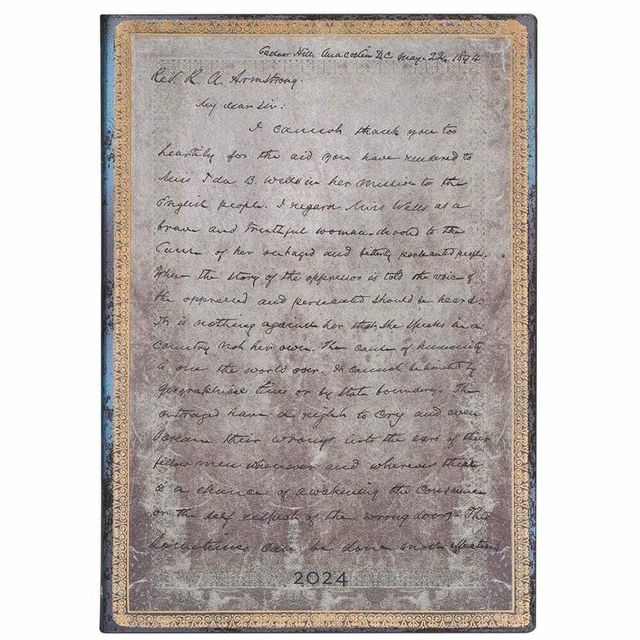 Cedar Hill Anacostia DC May. 22, 1894
Rev. R. A. Armstrong.
My dear Sir:
I cannot thank you too
heartily for the aid you have rendered to
Miss Ida B. Wells in her mission to the
English people. I regard Miss Wells as a
brave and truthful woman devoted to the
Cause of her outraged and bitterly persecuted people.
When the story of the oppressor is told the voice of
the oppressed and persecuted should be heard.
It is nothing against her that she speaks in a
Country not her own. The cause of humanity
is one the world over. It cannot be limited by
geographical lines or by State boundary. The
outraged have a right to Cry and even
scream their wrongs into the ears of their
fellow men whenever and wherever there
is a chance of awakening the Conscience
or the self respect of the wrong doer. This
Sometimes can be done most effective
2024